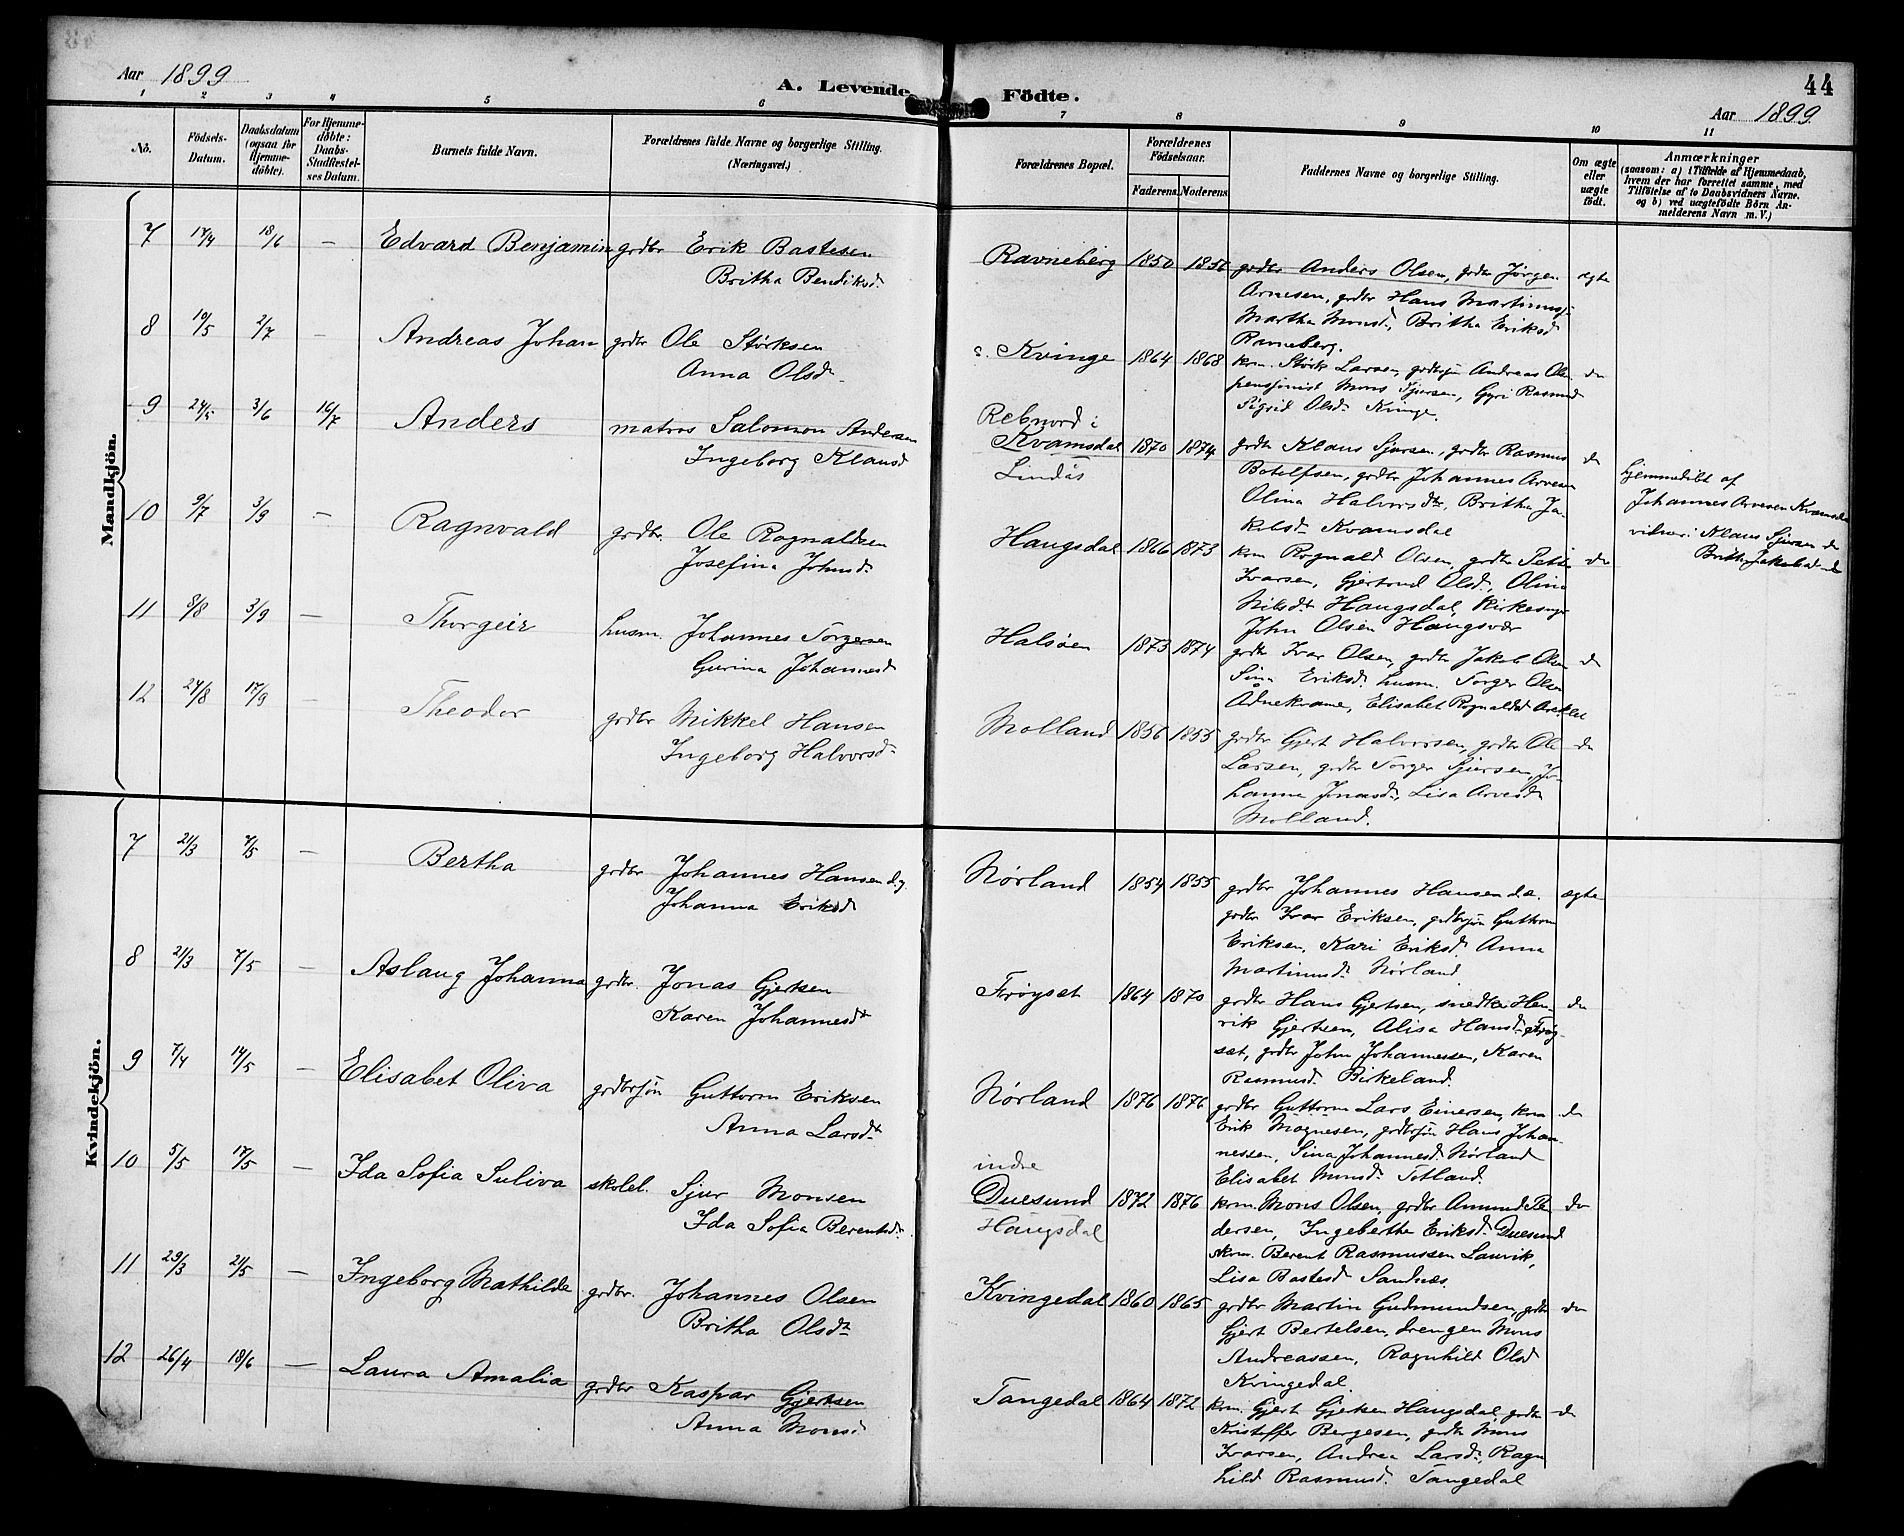 Aar 1899
A. Levende Födte.
44
Aar 1899.
1 2 3 4 5 6 7 8 9 10 11
No.
Födsels-Datum.
Daabsdatum (ogsaa for Hjemme-döbte).
For Hjemme-döbte: Daabs-Stadfæstel-ses Datum.
Barnets fulde Navn.
Forældrenes fulde Navne og borgerlige Stilling. (Næringsvei.)
Forældrenes Bopæl.
Forældrenes Födselsaar.
Faderens Moderens
Faddernes Navne og borgerlige Stilling.
Om ægte eller uægte födt.
Anmærkninger
(saasom: a) i Tilfælde af Hjemmedaab,
hvem der har forrettet samme, med
Tilföielse af to Daabsvidners Navne.
og b) ved uægtefödte Börn An-
melderens Navn m. V.)
Mandkjön.
7 17/4 18/6 – Edvard Benjamin grdbr Erik Bastesen
Britha Bendiksdr
Ravneberg 1850 1856 grdbr Anders Olsen, grdbr Jørgen ægte
Arnesen, grdbr Hans Martinus,
Martha Monsd, Britha Eriksd
Ravneberg.
8 10/5 2/7 – Andreas Johan grdbr Ole Størksen
Anna Olsdr
Kvinge 1864 1868 krm. Størk Larsen, grdbrsøn Andreas Olsen do
pensjonist Mons Sjursen, Gyri Rasmusd
Sigrid Olsdr Kvinge.
9 24/5 3/6 16/7 Anders matros Salomon Andersen
Ingeborg Klausd
Rebnord i
Kvamsdal
Lindås
1870 1874 grdbr Klaus Sjursen, grdbr Rasmus do
Botolfsen, grdbr Johannes Arvesen
Olina Halvorsdr, Britha Ja-
kobsdr Kvamsdal
Hjemmedöbt af
Johannes Arvesen Kvamsdal
vidner: Klaus Sjursen do
Britha Jakobsd do
10 9/7 3/9 – Ragnvald grdbr. Ole Rognaldsen
Josefina Johnsdr
Haugsdal 1866 1873 krm Rognald Olsen, grdbr Petter do
Ivarsen, Gjertrud Olsdr, Olina
Nilsdr Haugsdal, Kirkesanger
John Olsen Haugsvær
11 8/8 3/9 – Thorgeir husm. Johannes Torgersen
Gurina Johannesd
Halsøen 1873 1874 grdbr Ivar Olsen, grdbr Jakob Olsen do
Sina Eriksdr husm. Torger Olsen
Ådnekvame, Elisabet Rognaldsd
12 27/8 17/9 – Theodor grdbr Mikkel Hansen
Ingeborg Halvorsdr
Molland 1856 1855 grdbr Gjert Halvorsen, grdbr Ole do
Larsen, grdbr Torger Sjursen, Jo-
hanna Jonasdr, Lisa Arvesdr
Molland.
Kvindekjön.
7 21/3 7/5 – Bertha grdbr Johannes Hansen d.y.
Johanna Eriksd
Nørland 1854 1855 grdbr Johannes Hansen d.æ. ægte
grdbr Ivar Eriksen, grdbrsøn Guttorm
Eriksen, Kari Eriksd. Anna
Martinusdr Nørland
8 21/3 7/5 – Aslaug Johanna grdbr. Jonas Gjertsen
Karen Johannesdr
Frøyset 1864 1870 grdbr Hans Gjertsen, snedker Hen- do
rik Gjertsen, Alisa Hansdr Frøy-
set, grdbr John Johannessen, Karen
Rasmusd. Birkeland.
9 7/4 14/5 – Elisabet Oliva grdbrsøn Guttorm Eriksen
Anna Larsdr
Nørland 1876 1876 grdbr Guttorm Lars Einersen, krm do
Erik Magnesen, grdbrsøn Hans Johan-
nessen, Sina Johannesd. Nørland
Elisabet Monsdr Totland.
10 5/5 17/5 – Ida Sofia Suliva skolel. Sjur Monsen
Ida Sofia Berentsdr
indre
Duesund
Haugsdal
1872 1876 krm. Mons Olsen, grdbr Amund Pe- do
dersen, Ingebertha Eriksdr Duesund
krm. Berent Rasmussen Laurik,
Lisa Bastesd Sandnæs.
11 29/3 21/5 – Ingeborg Mathilde grdbr. Johannes Olsen
Britha Olsdr
Kvingedal 1860 1865 grdbr Martin Gudmundsen, grdbr do
Gjert Bertelsen, drengen Mons
Andreassen, Ragnhild Olsd
Kvingedal.
12 26/4 18/6 – Laura Amalia grdbr Kaspar Gjertsen
Anna Monsd
Tangedal 1864 1872 krm. Gjert Gjertsen Haugsdal, grdbr do
Kristoffer Bergesen, grdbr Mons
Ivarsen, Andrea Larsdr, Ragn
hild Rasmusd. Tangedal